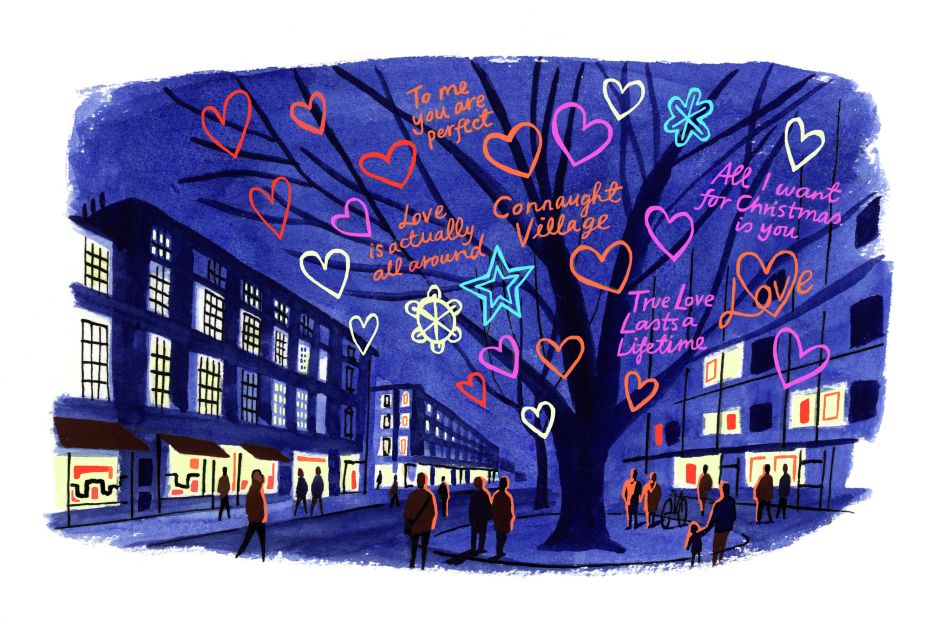 To me
you are
perfect
Love
is actually
all around
Connaught
Village
All I want
for Christmas
is you
True Love
Lasts a
Lifetime
Love